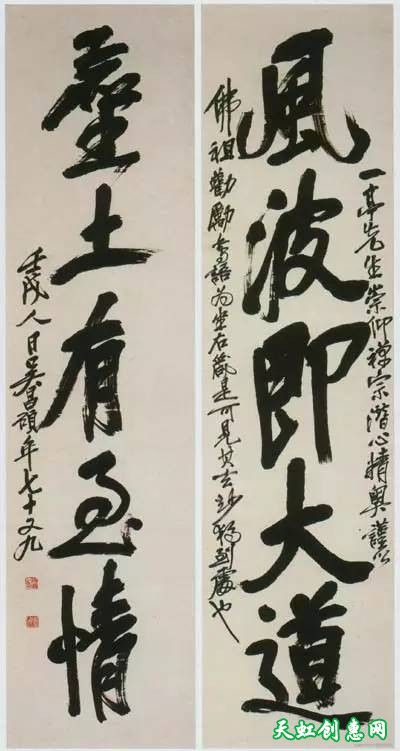 風波即大道
一亭先生崇仰禪宗潛心精奧謹以
佛祖勸勵語为坐右箴是可見其玄妙獨到處也
塵土有至情
壬戌人日吳昌碩年七十又九
天虹创意网